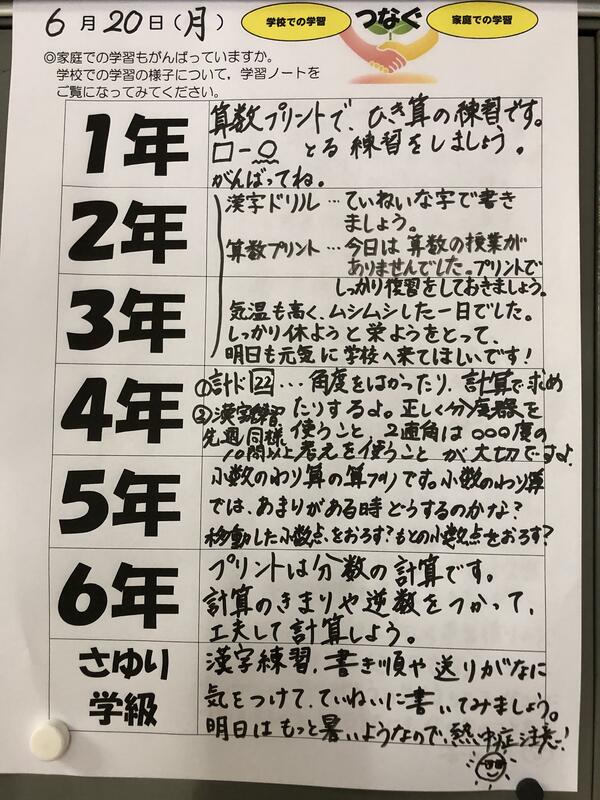 6月20日(月)
学校での学習
つなぐ
家庭での学習
◎家庭での学習もがんばっていますか。
学校での学習の様子について、学習ノートを
ご覧になってみてください。
1年
算数プリントで、ひき算の練習です。
□-○ とる 練習をしましょう。
がんばってね。
2年
漢字ドリル…ていねいな字で書き
ましょう。
算数プリント…今日は算数の授業が
ありませんでした。プリントで
しっかり復習をしておきましょう。
3年
気温も高く、ムシムシした一日でした。
しっかり休ようと栄ようをとって、
明日も元気に学校へ来てほしいです!
4年
①計ド22…角度をはかったり、計算で求め
たりするよ。正しく分度器を
使うこと、2直角は○○○度の
考えを使うことが大切ですよ。
②漢字練習
先週同様
10問以上
5年
小数のわり算の算プリです。小数のわり算
では、あまりがある時どうするのかな?
移動した小数点をおろす?もとの小数点をおろす?
6年
プリントは分数の計算です。
計算のきまりや逆数をつかって、
工夫して計算しよう。
さゆり
学級
漢字練習、書き順や送りがなに
気をつけて、ていねいに書いてみましょう。
明日はもっと暑いようなので、熱中症注意!